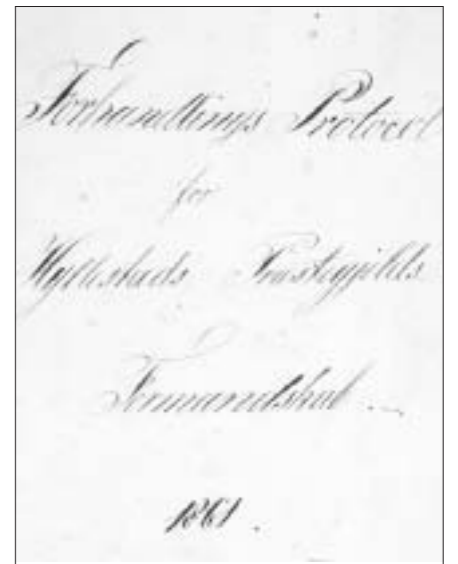 Forhandlings Protocol
for
Hyllestads Præstegjelds
Formandskab
1861.